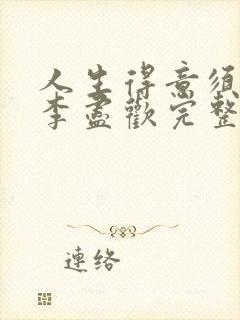 人生得意须
李盡歡完整
連络